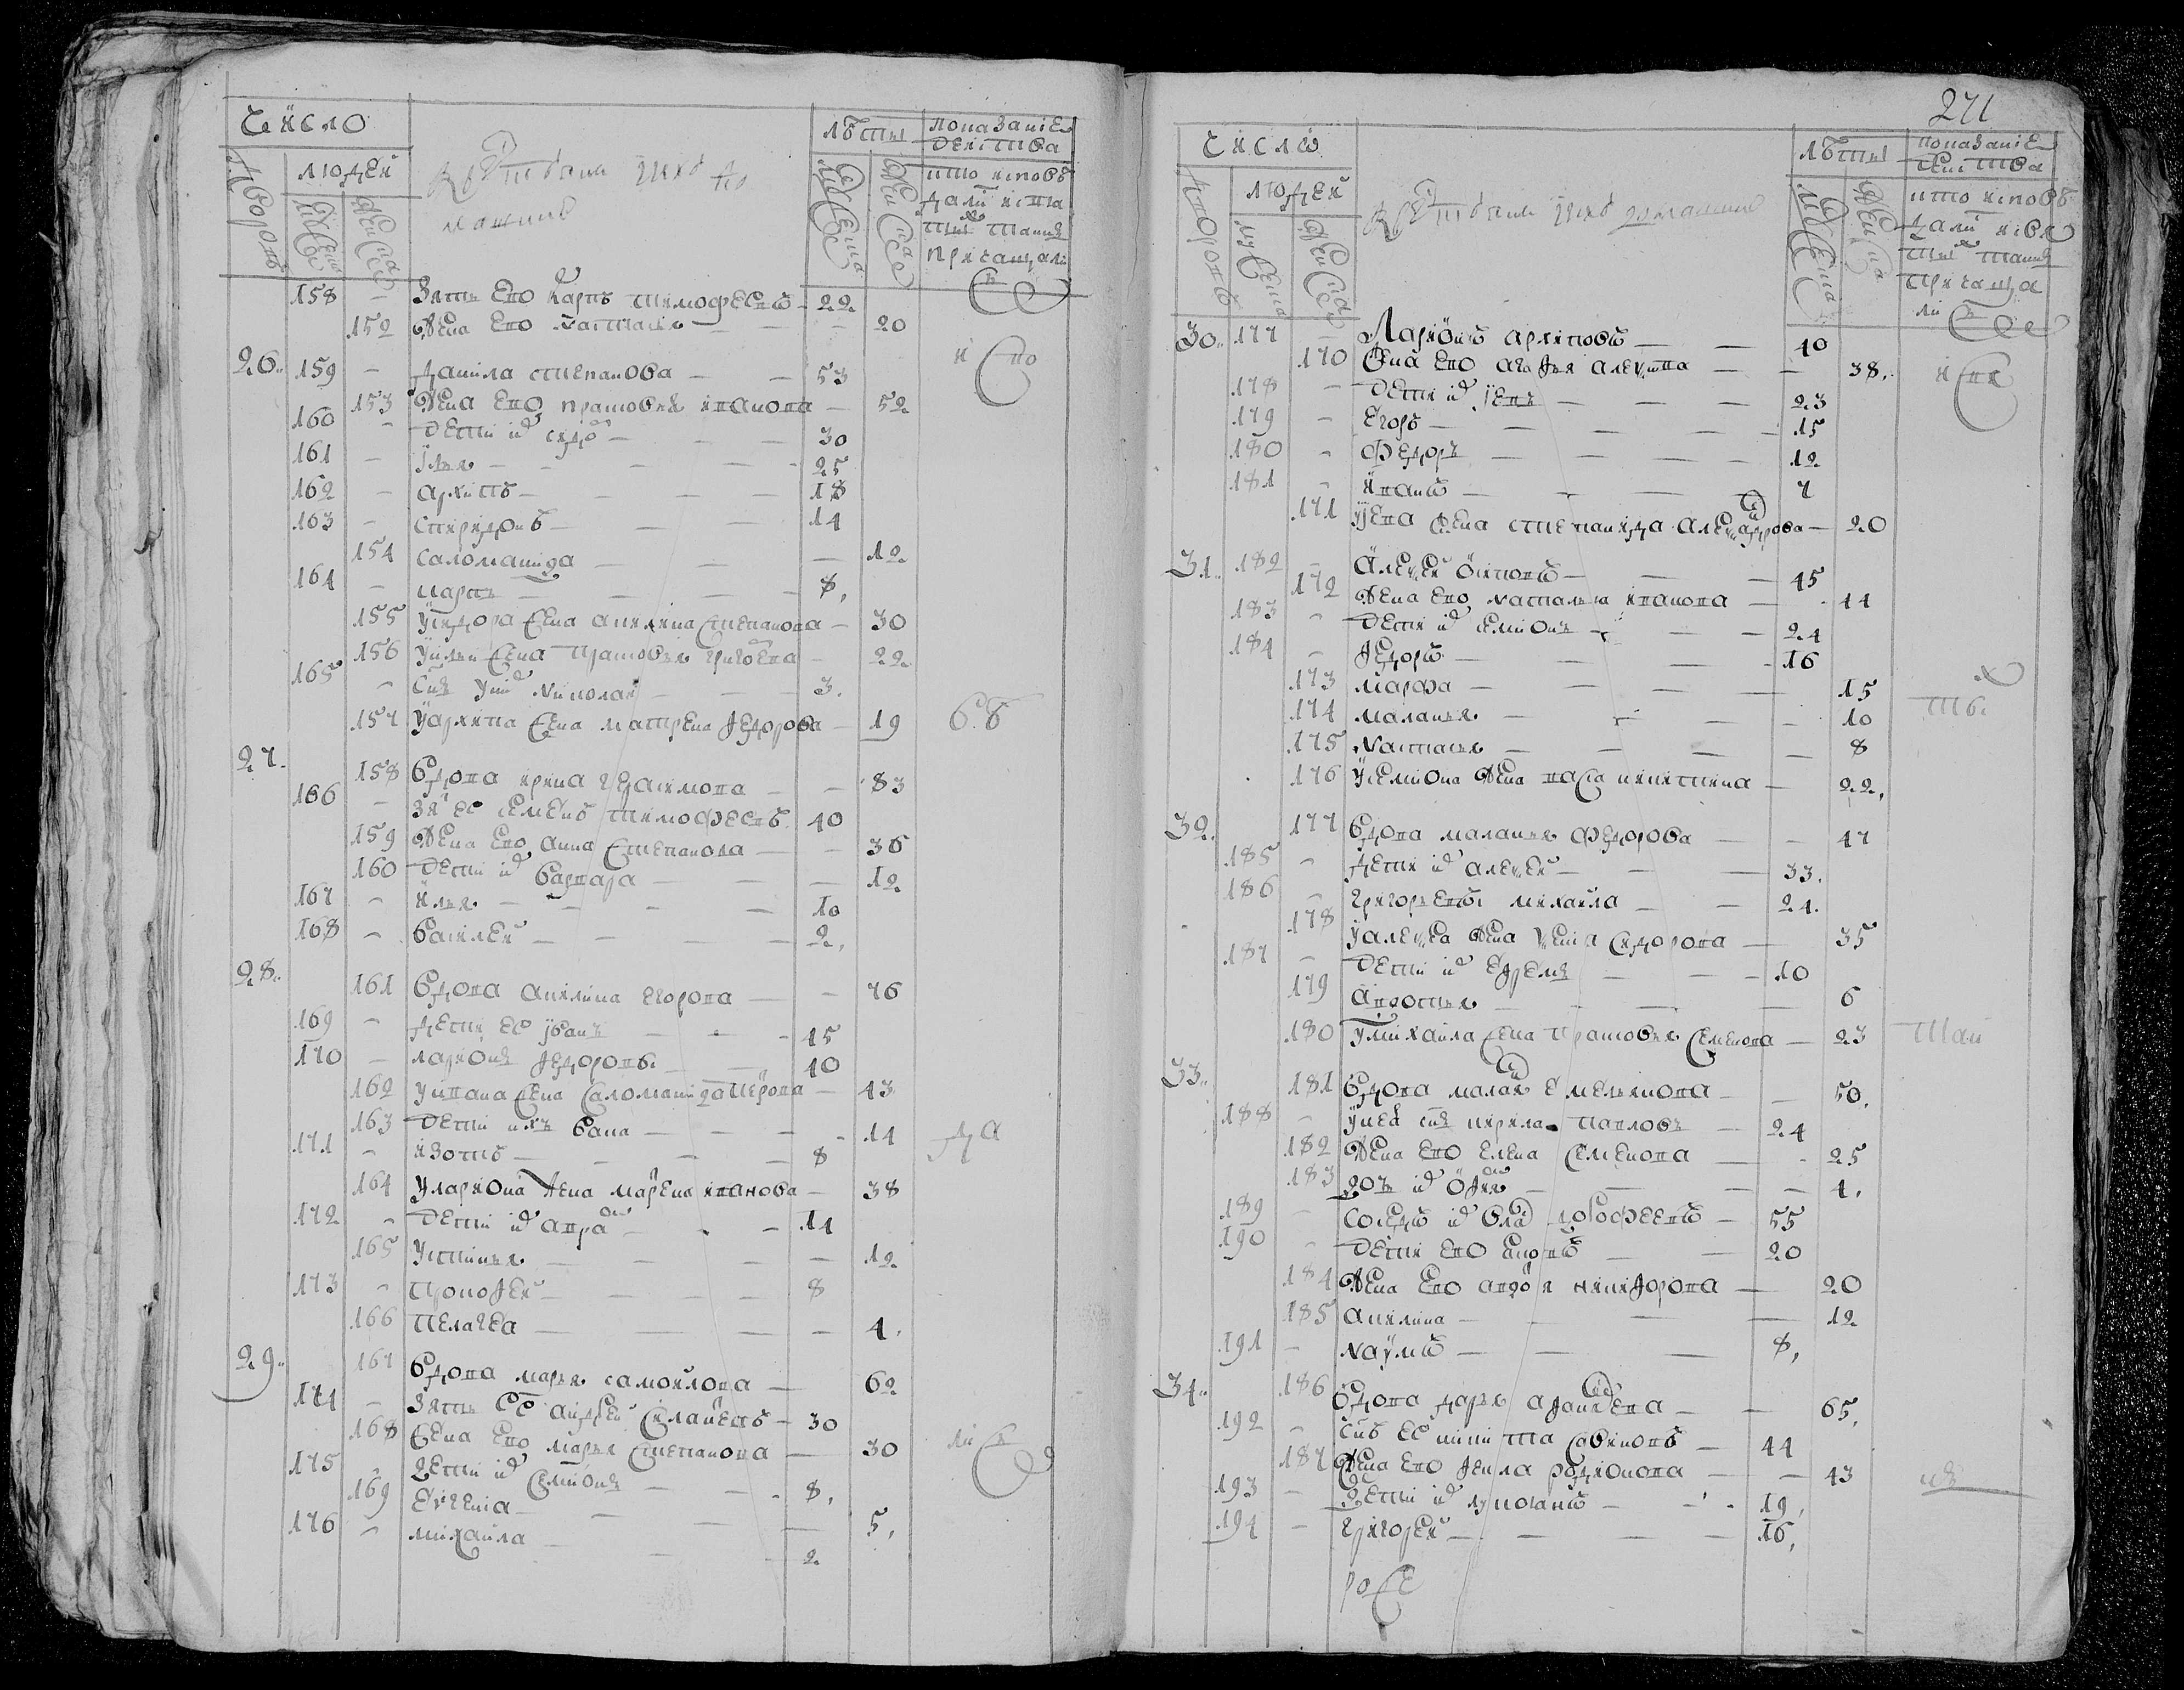 Число
Дворовъ
людей
мужеска
женска
Крестьяне и ихъ домашние
лѣты
мужеска
женска
показание действа
кто исповѣдали и святыхъ таинъ причащались
158 - Зять ево Карпъ Тимофеевъ - 22
152 Жена ево Настасья - 20
26. 159 - Данила Степанова - 53
испо
153 Жена ево Прасковья Иванова - 52
160 - Дети их Сидоръ - 30
161 - Илья - 25
162 - Архипъ - 18
163 - Спиридонъ - 14
154 Саломанида - 12
164 - Маркъ - 8,
155 У Сидора жена Акилина Степанова - 30
156 У Ильи жена Прасковья Григорева - 22
165 - Сынъ у них Николай - 3.
157 У Архипа жена Матрена Федорова - 19
27. 158 Вдова Ирина Герасимова - 83
166 - Зять ее Семенъ Тимофеевъ 40
159 Жена ево Анна Степанова - 36
160 Дети их Варвара - 12
167 - Илья - 10
168 - Василей - 2,
28. 161 Вдова Акилина Егорова - 76
169 - Дети ее Иванъ - 45
170 - Ларионъ Федоровы - 40
162 У Ивана жена Саломанида Петрова - 43
163 Дети ихъ Васа - 14
да
171 - Изотъ - 8
164 У Лариона жена Марфа Иванова - 38
172 - Дети их Андрей - 14
165 Устинья - 12
173 - Прокофей - 8
166 Пелагея - 4.
29. 167 Вдова Марья Самойлова - 62
174 - Зять ее Андрей Силаневъ - 30
168 Жена ево Марья Степанова - 30
лись
175 - Дети их Семионъ - 8,
169 Евгения - 5,
176 - Михайла - 2
271
Число
Дворовъ
людей
мужеска
женска
Крестьяне и ихъ домашние
лѣты
мужеска
женска
показание действа
кто исповѣдали и святыхъ таинъ причащались
30. 177 - Ларионъ Архиповъ - 40
170 Жена ево Агафья Алекѣева - 38.
178 - Дети их Иевъ - 23
179 - Егоръ - 15
180 - Федоръ - 12
181 - Иванъ - 7
171 У Иева жена Степанида Александрова - 20
31. 182 - Алексей Осиповъ - 45
172 Жена ево Наталья Иванова - 44
183 - Дети их Семионъ - 24
184 - Федоръ - 16
173 Марфа - 15
174 Маланья - 10
175 Настасья - 8
176 У Семиона жена Васса Никитина - 22,
32. 177 Вдова Маланья Федорова - 47
185 - Дети их Алексей - 33.
186 - Григорьевы Михайла - 24.
178 У Алексея жена Ксения Сидорова - 35
187 - Дети их Ефремъ - 10
179 Афросинья - 6
180 У Михайла жена Прасковья Семенова - 23
таи
33. 181 Вдова Маланья Емельянова - 50.
188 - У нея сынъ Кирила Павловъ - 24
182 Жена ево Елена Семенова - 25
183 Дочь их Офимья - 4.
189 - Соседъ их Влас Дорофеевъ - 55
190 - Дети ево Андрей - 20
184 Жена ево Авдотья Никифорова - 20
185 Акилина - 12
191 - Наумъ - 8,
34. 186 Вдова Дарья Афанасева - 65.
192 - Сынъ ее Никита Савиновъ - 44
187 Жена ево Фекла Родионова - 43
нъ
193 - Дети их Лукоянъ - 19,
194 - Григорей - 16,